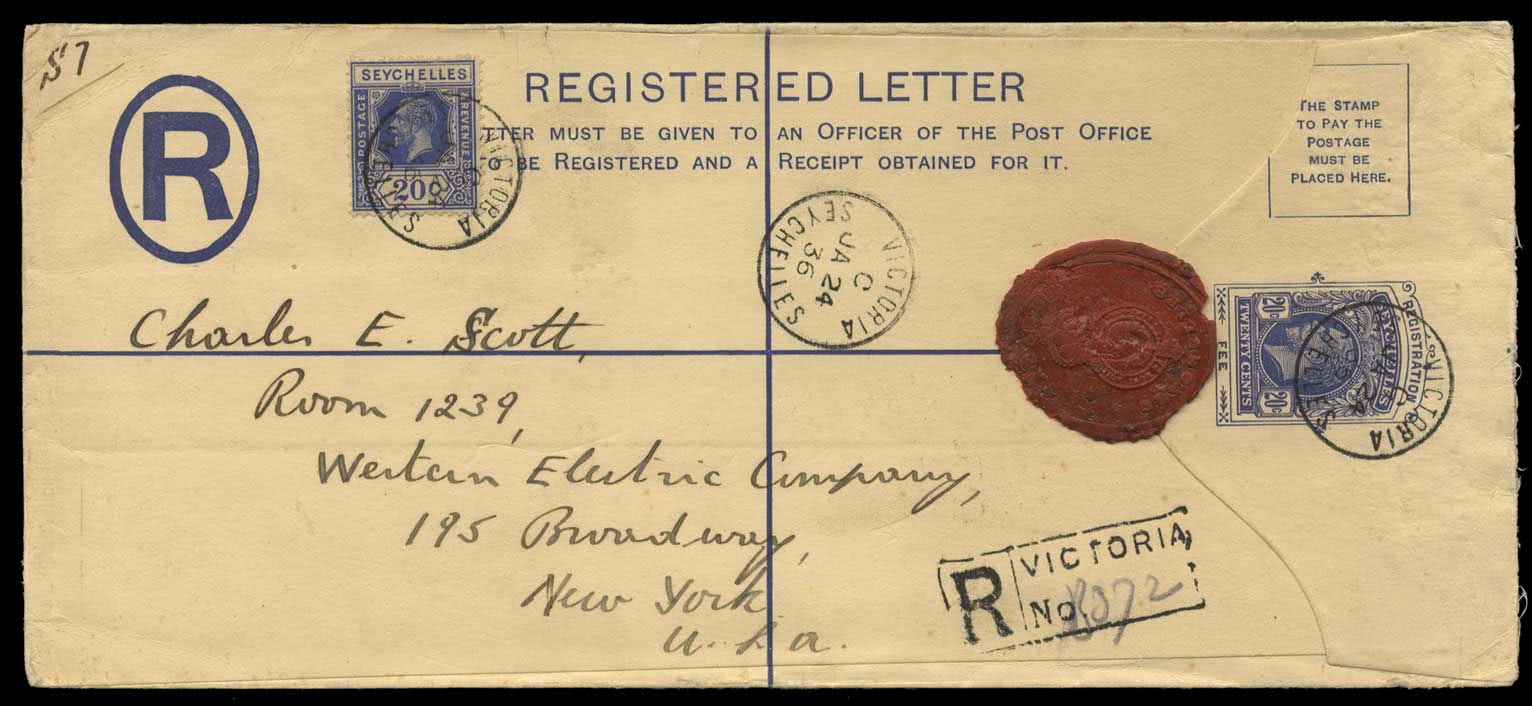 S7
SEYCHELLES
POSTAGE
REVENUE
20c
R
REGISTERED LETTER
TTER MUST BE GIVEN TO AN OFFICER OF THE POST OFFICE
O BE REGISTERED AND A RECEIPT OBTAINED FOR IT.
THE STAMP
TO PAY THE
POSTAGE
MUST BE
PLACED HERE.
VICTORIA
VICTORIA
C
JA 24
36
SEYCHELLES
REGISTRATION
SEYCHELLES
20c TWENTY CENTS 20c
FEE
VICTORIA
C
JA 24
36
SEYCHELLES
Charles E. Scott,
Room 1239,
Western Electric Company,
195 Broadway,
New York
U.S.A.
R VICTORIA
No.